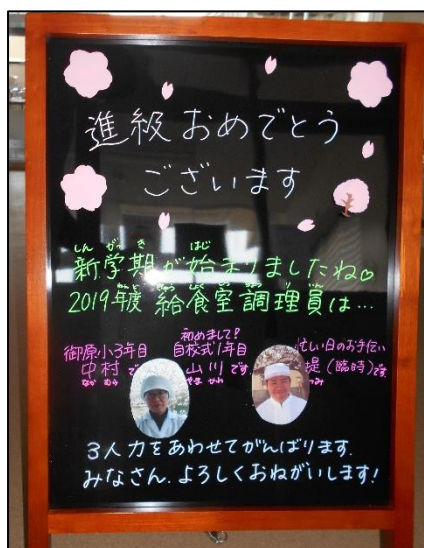 進級おめでとう
ございます
しんがっき はじ
新学期が始まりましたね。
2019年度 給食室調理員は…
御原小3年目
中村です
なかむら
初めまして?
自校式1年目
山川です
やまかわ
忙しい日のお手伝い
堤(臨時)です
つつみ
3人力をあわせてがんばります。
みなさん、よろしくおねがいします!